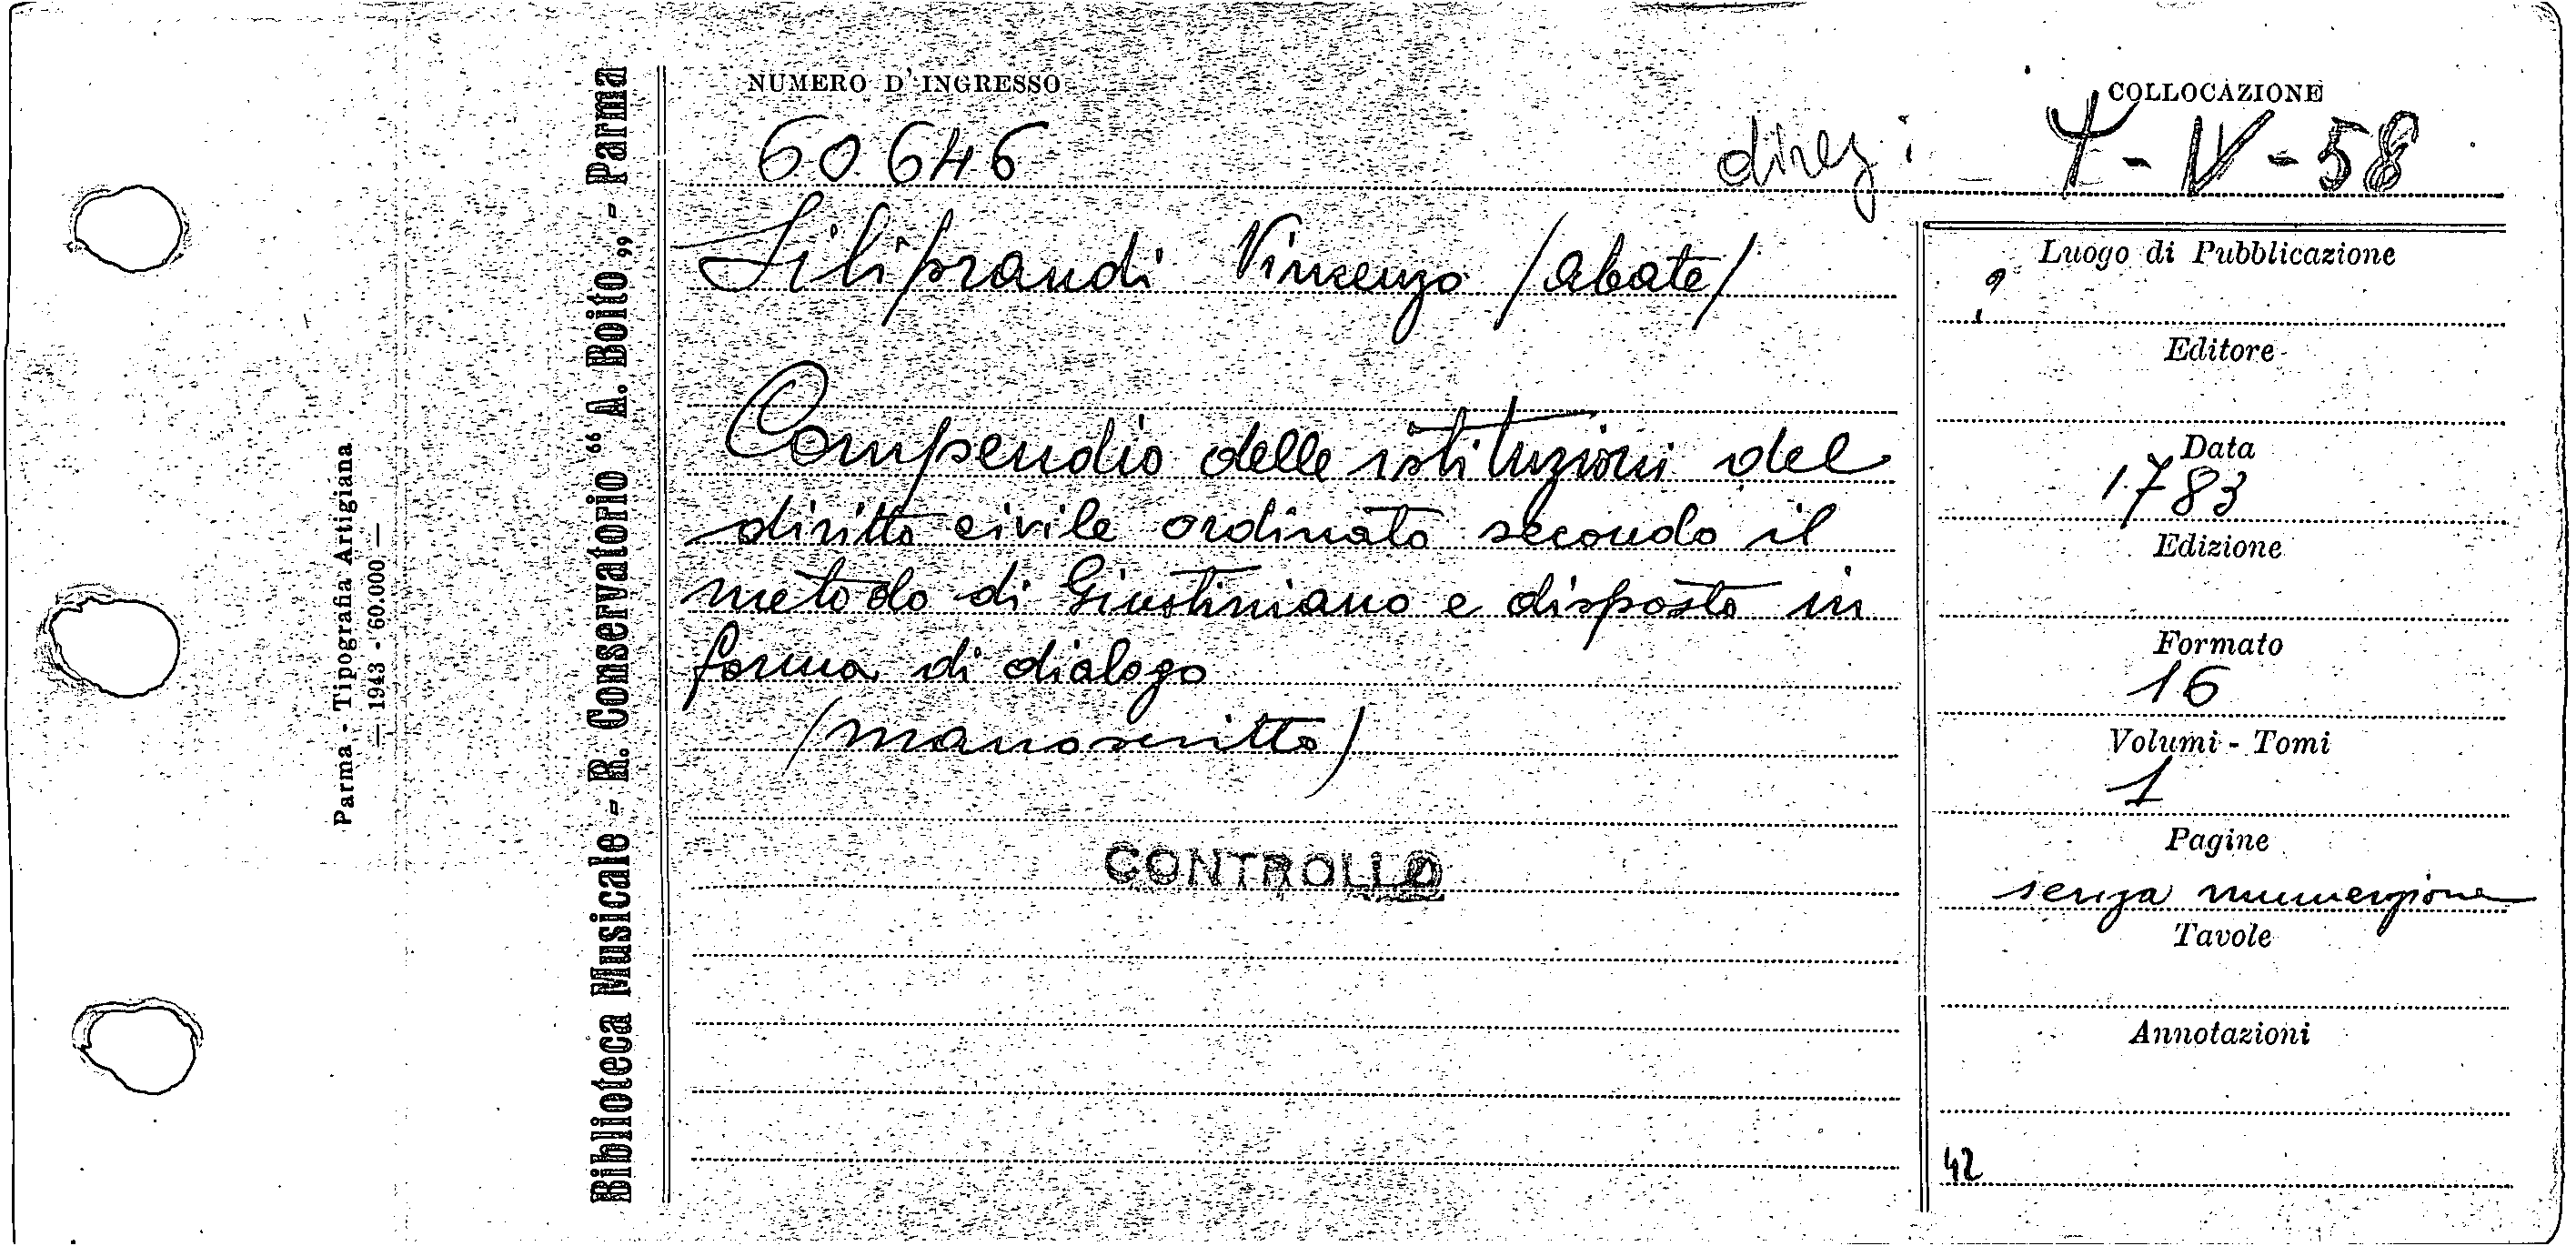 NUMERO D'INGRESSO
60.646
COLLOCAZIONE
direz: - - V - 58
Siliprandi Vincenzo /abate/
Compendio delle istituzioni del
diritto civile ordinato secondo il
metodo di Giustiniano e disposto in
forma di dialogo
(manoscritto)
CONTROLLO
Luogo di Pubblicazione
?
Editore
Data
1783
Edizione
Formato
16
Volumi - Tomi
1
Pagine
senza numerazione
Tavole
Annotazioni
42
Biblioteca Musicale - R. Conservatorio “A. Boito„ - Parma
Parma - Tipografia Artigiana
— 1943 - 60.000 —